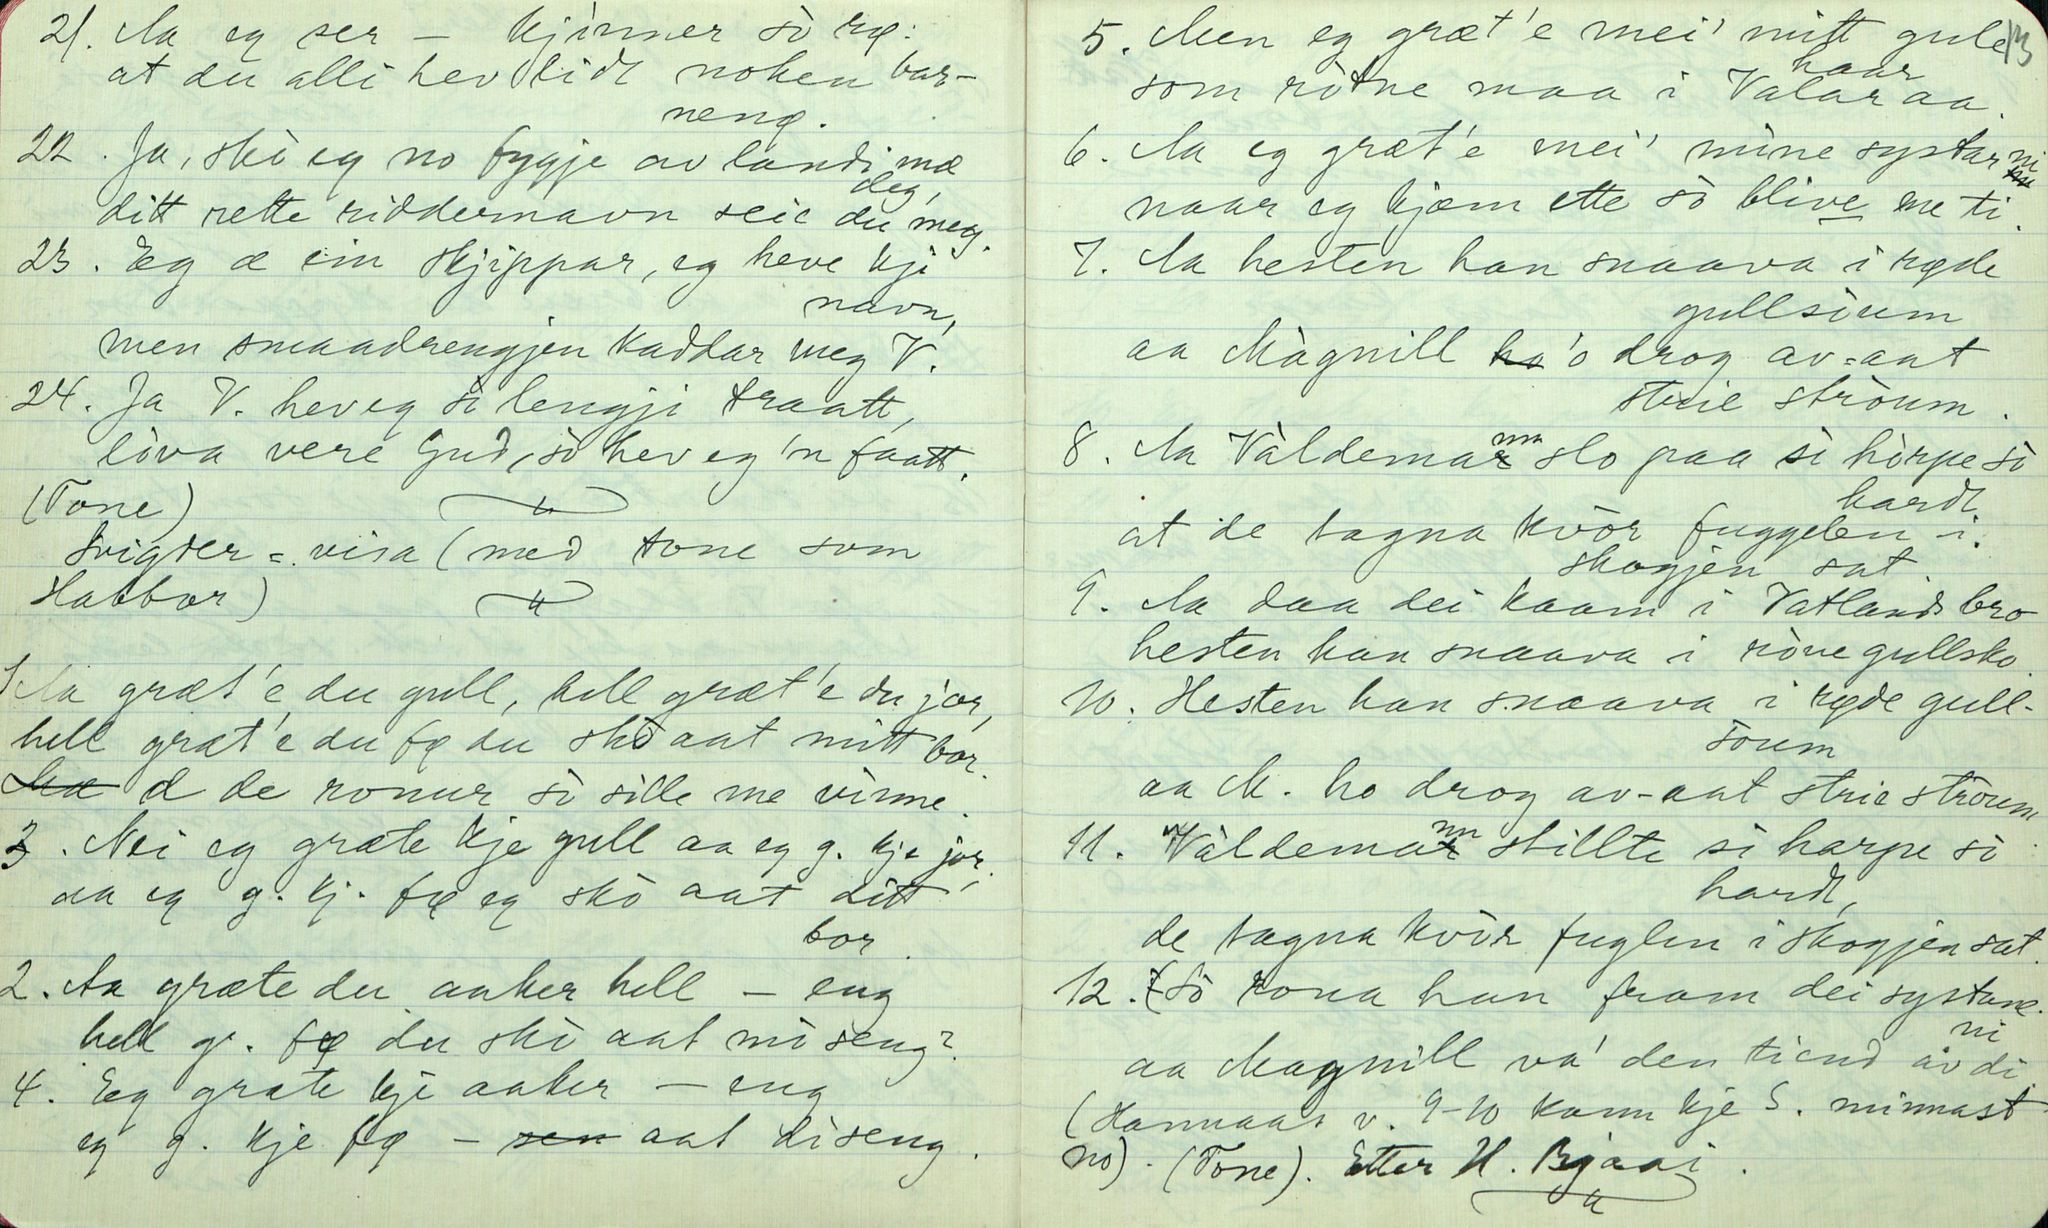 21. Aa eg ser – kjinner sò ræ:
at du alli hev lidt noken bar-
neng.
22. Ja, skò eg no fygje av landi mæ
deg,
ditt rette riddernavn seie du meg.
23. Eg æ ein skjippar, eg heve kji
navn,
men smaadrengjen kaddar meg V.
24. Ja V. hev eg sò lengji traatt,
lòva vere Gud, sò hev eg 'n faatt.
(Tone)
Svigder-visa (med tone som
Habbor)
1 Aa græt'e du gull, hell græt'e du jor,
hell græt'e du fø du skò aat mitt bor.
d de ronur sò sille me vinne.
3. Nei eg græte kje gull aa eg g. kje jor,
aa eg g. kj. fø eg skò aat ditt
bor.
2. Aa græte du aaker hell – eng
hell g. fø du skò aat mi seng?
4. Eg græte kje aaker – eng
eg g. kje fø – aat di seng.
13
5. Men eg græt'e mei' mitt gule
haar
som ròtne maa i Valaraa.
6. Aa eg græt'e mei' mine systar ni
naar eg kjæm ette sò blive me ti.
7. Aa hesten han snaava i røde
gullsòum
aa Màgnill 'o drog av-aat
strie stròum.
8. Aa Vàldemann slo paa si hòrpe sò
hardt
at de tagna kvòr fuggelen i
skogjen sat.
9. Aa daa dei kaam i Vatlands bro
hesten han snaava i ròue gullsko.
10. Hesten han snaava i røde gull-
sòum
aa M. ho drog av-aat strie stròum
11. Vàldemann stillte si harpe sò
hardt,
de tagna kvòr fuglen i skogjen sat.
12. Sò rona han fram dei systane
ni
aa Magnill va' den tiend av di.
(Hannaas v. 9-10 kann kje S. minnast
no). (Tone). Etter H. Bjåai.